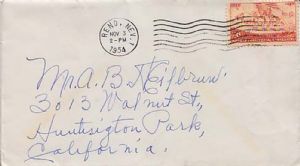 RENO, NEV. 1
NOV 3
2-PM
1954
Mr. A. B. Heilbrun,
3013 Walnut St,
Huntsington Park,
California.